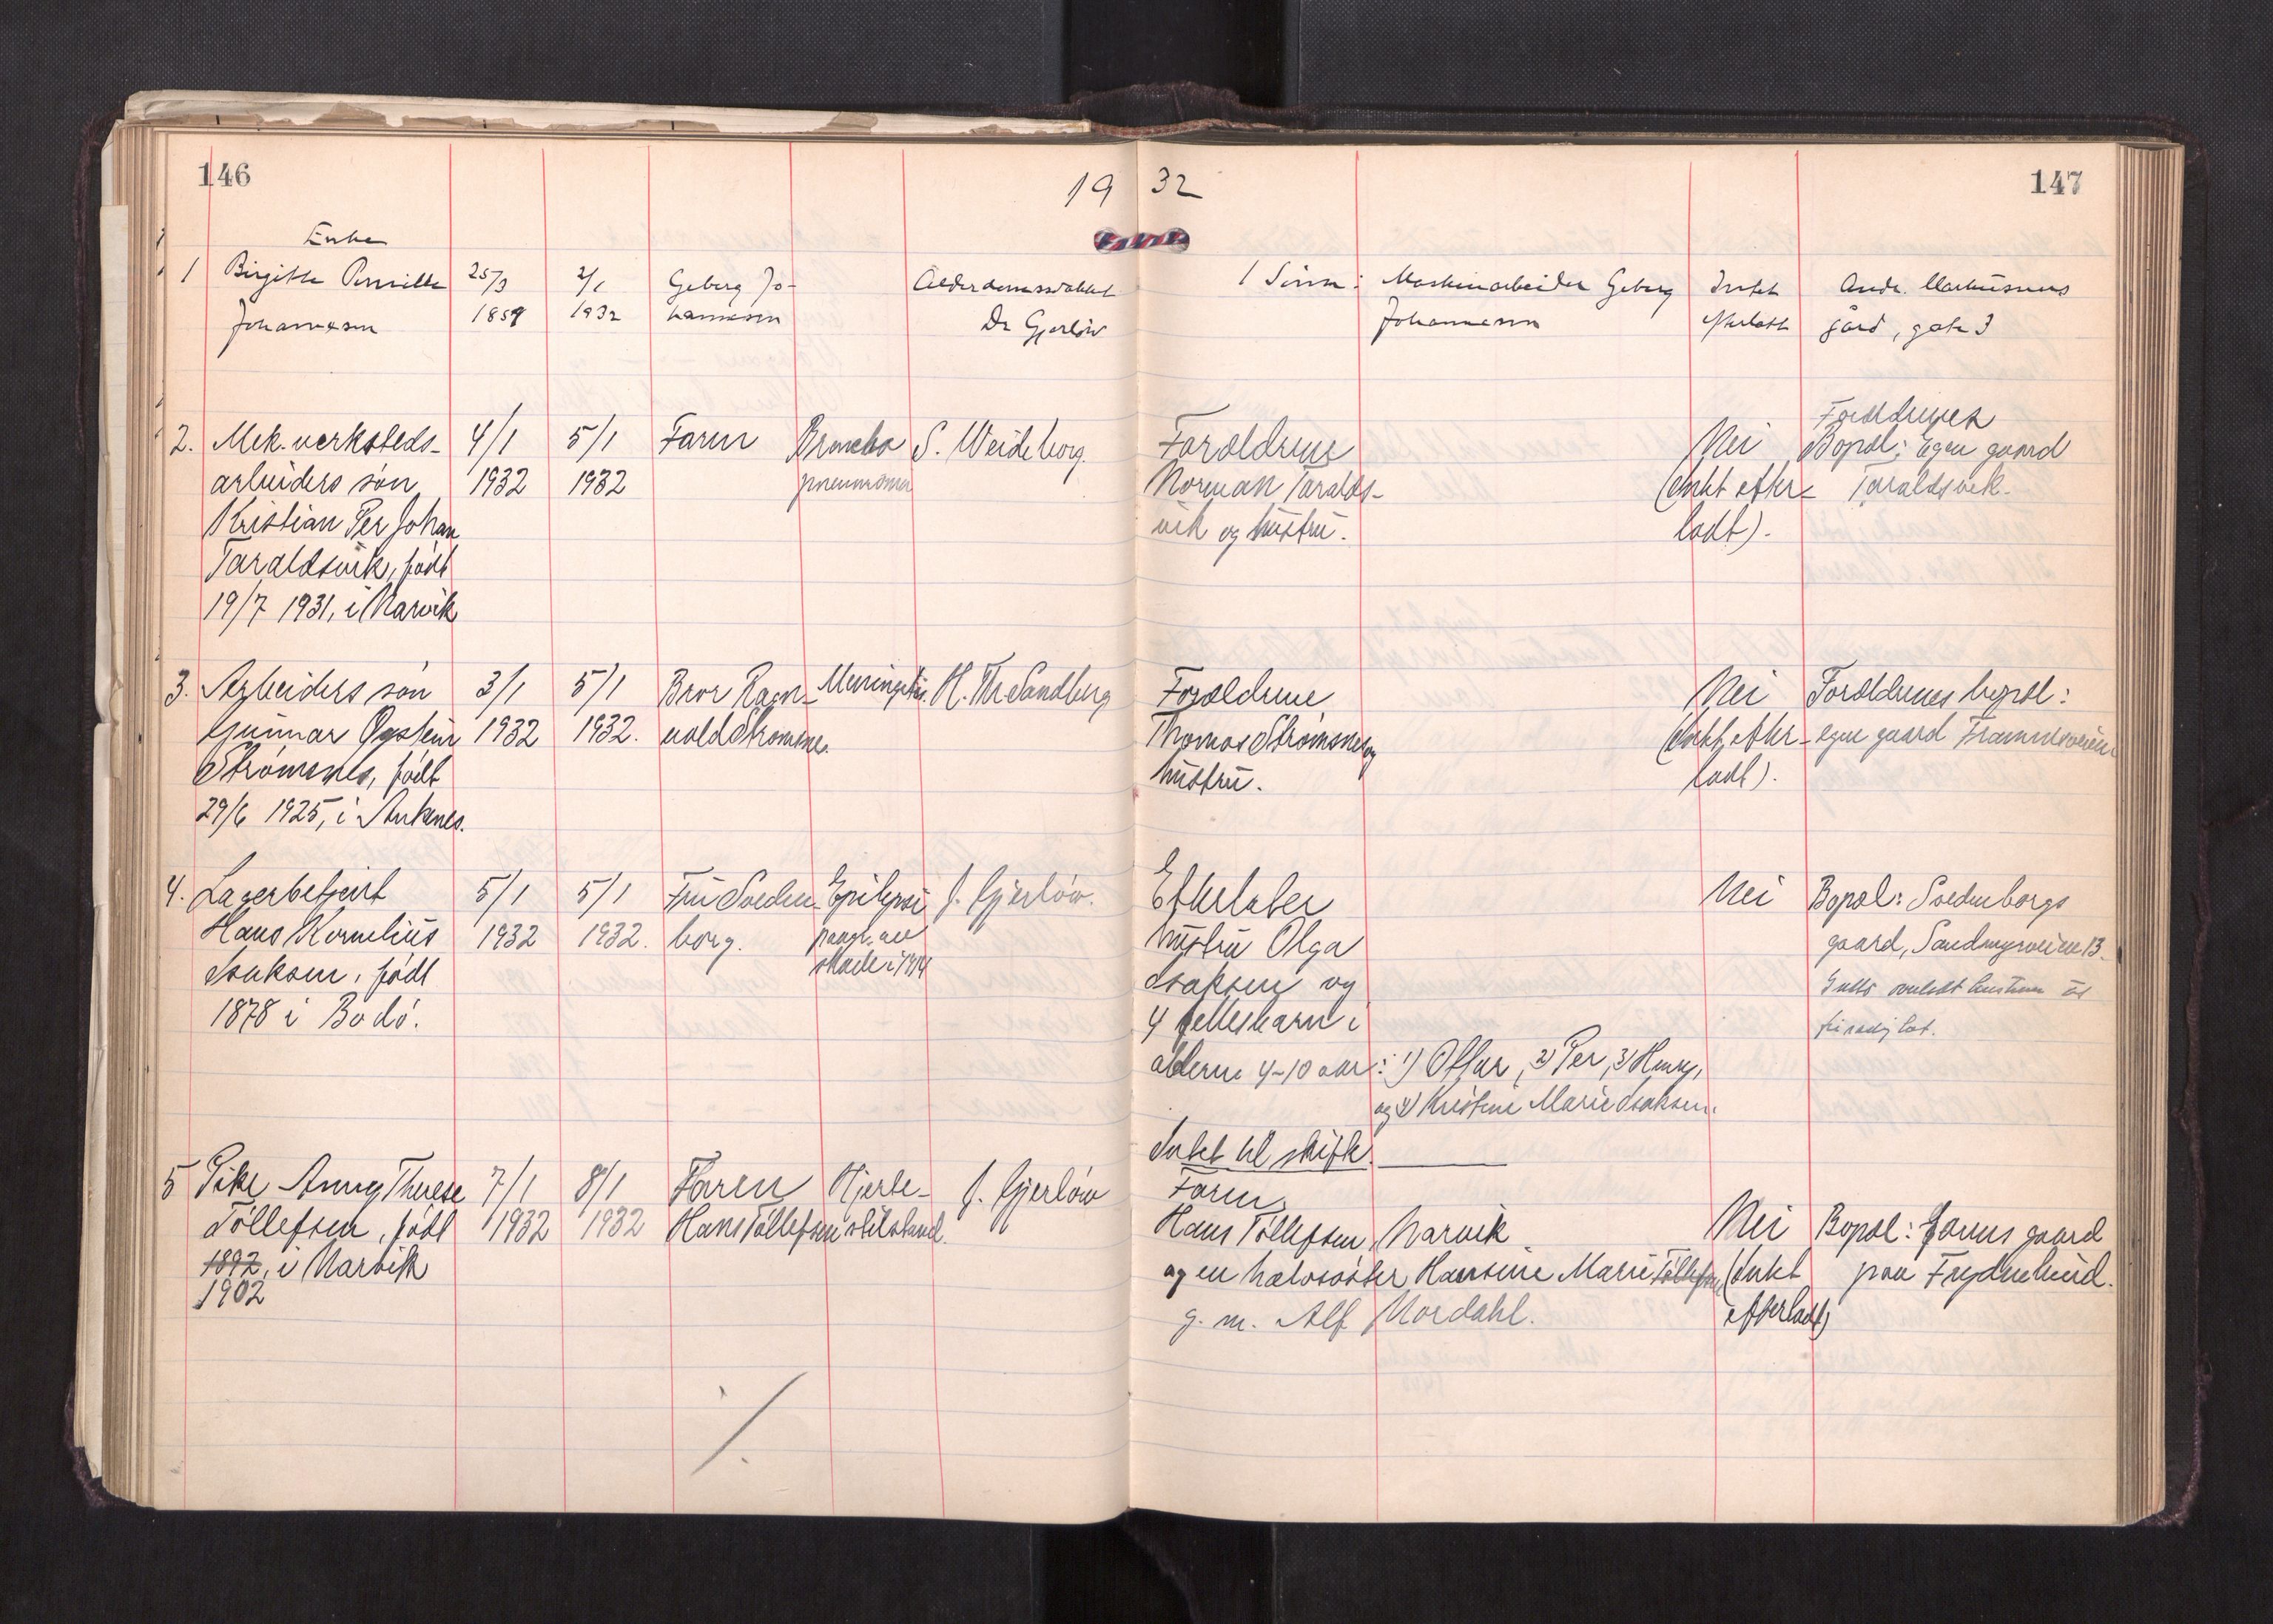 146
19 32
147
Enke
1 Birgitte Pernille 25/3 2/1 Geberg Jo- Alderdomssvakhet 1 Sønn: Maskinarbeider Geberg Intet Andr. Markussens
Johannesen 1859 1932 hannesen Dr Gjerløw Johannesen efterlatt gård, gate 3
Forældrenes
2. Mek. verksteds- 4/1 5/1 Faren Broncho S. Weideborg. Forældrene Nei Bopæl: Egen gaard
arbeiders søn 1932 1932 pneumonia Norman Taralds- (Intet efter- Taraldsvik.
Kristian Per Johan vik og hustru. ladt).
Taraldsvik, født
19/7 1931, i Narvik
3. Arbeiders søn 3/1 5/1 Bror Ragn- Meningitis. H. Thr Sandberg Forældrene Nei Forældrenes bopæl:
Gunnar Øystein 1932 1932. vald Strømsnes. Thomas Strømsnes og (Intet efter- egen gaard Framnesveien
Strømsnes, født hustru. ladt).
29/6 1925, i Ankenes.
4. Lagerbetjent 5/1 5/1 Fru Sveden- Epilepsi J. Gjerløw. Efterlater Nei Bopæl: Svedenborgs
Hans Kornelius 1932 1932. borg. paagr. av hustru Olga gaard, Sandmyrveien 13.
Isaksen, født skade i 1914 Isaksen og
1878 i Bodø. 4 fellesbarn i
alderen 4-10 aar: 1) Ottar, 2) Per, 3) Henry,
og 4) Kristine Marie Isaksen.
Intet til skifte.
5 Pike Anny Therese 7/1 8/1 Faren Hjerte- J. Gjerløw Faren
Tollefsen, født 1932 1932 Hans Tollefsen stilstand. Hans Tollefsen, Narvik Nei Bopæl: Farens gaard
1892, i Narvik og en halvsøster Hansine Marie Tollefsen, (Intet paa Frydenlund.
1902 g. m. Alf Nordahl. efterladt)